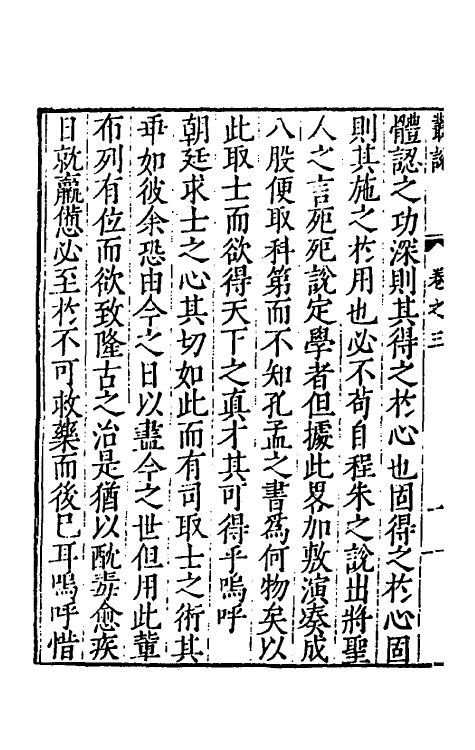 叢說 卷之三
體認之功深則其得之於心也固得之於心固
則其施之於用也必不苟自程朱之說出將聖
人之言死死說定學者但據此畧加敷演湊成
八股便取科第而不知孔孟之書爲何物矣以
此取士而欲得天下之真才其可得乎嗚呼
朝廷求士之心其切如此而有司取士之術其
乖如彼余恐由今之日以盡今之世但用此輩
布列有位而欲致隆古之治是猶以酖毒愈疾
日就羸憊必至於不可救藥而後已耳嗚呼惜